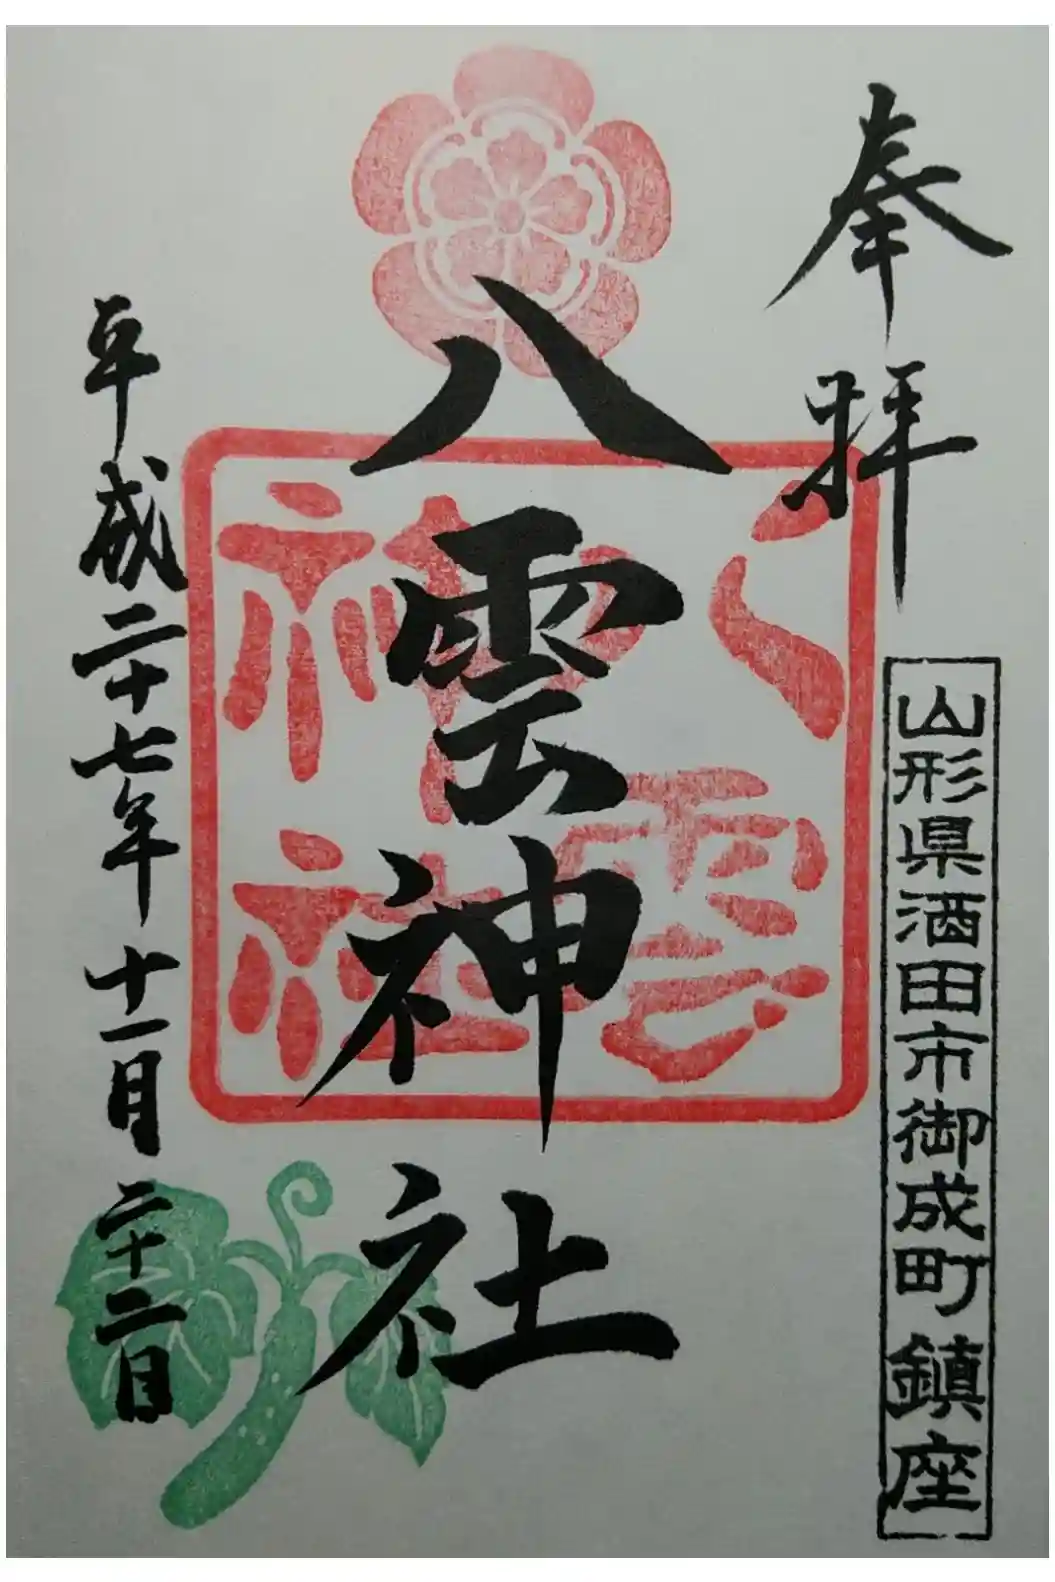 奉拝
山形県酒田市御成町鎮座
八雲神社
八雲
神社
平成二十七年十一月二十二日